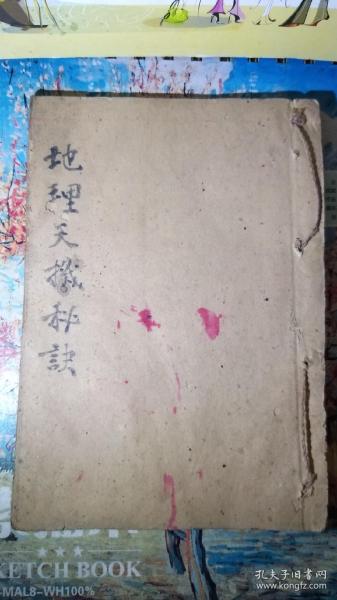 地理天機秘訣
KETCH BOOK
-MAL8-WH100%
孔夫子旧书网
www.kongfz.com